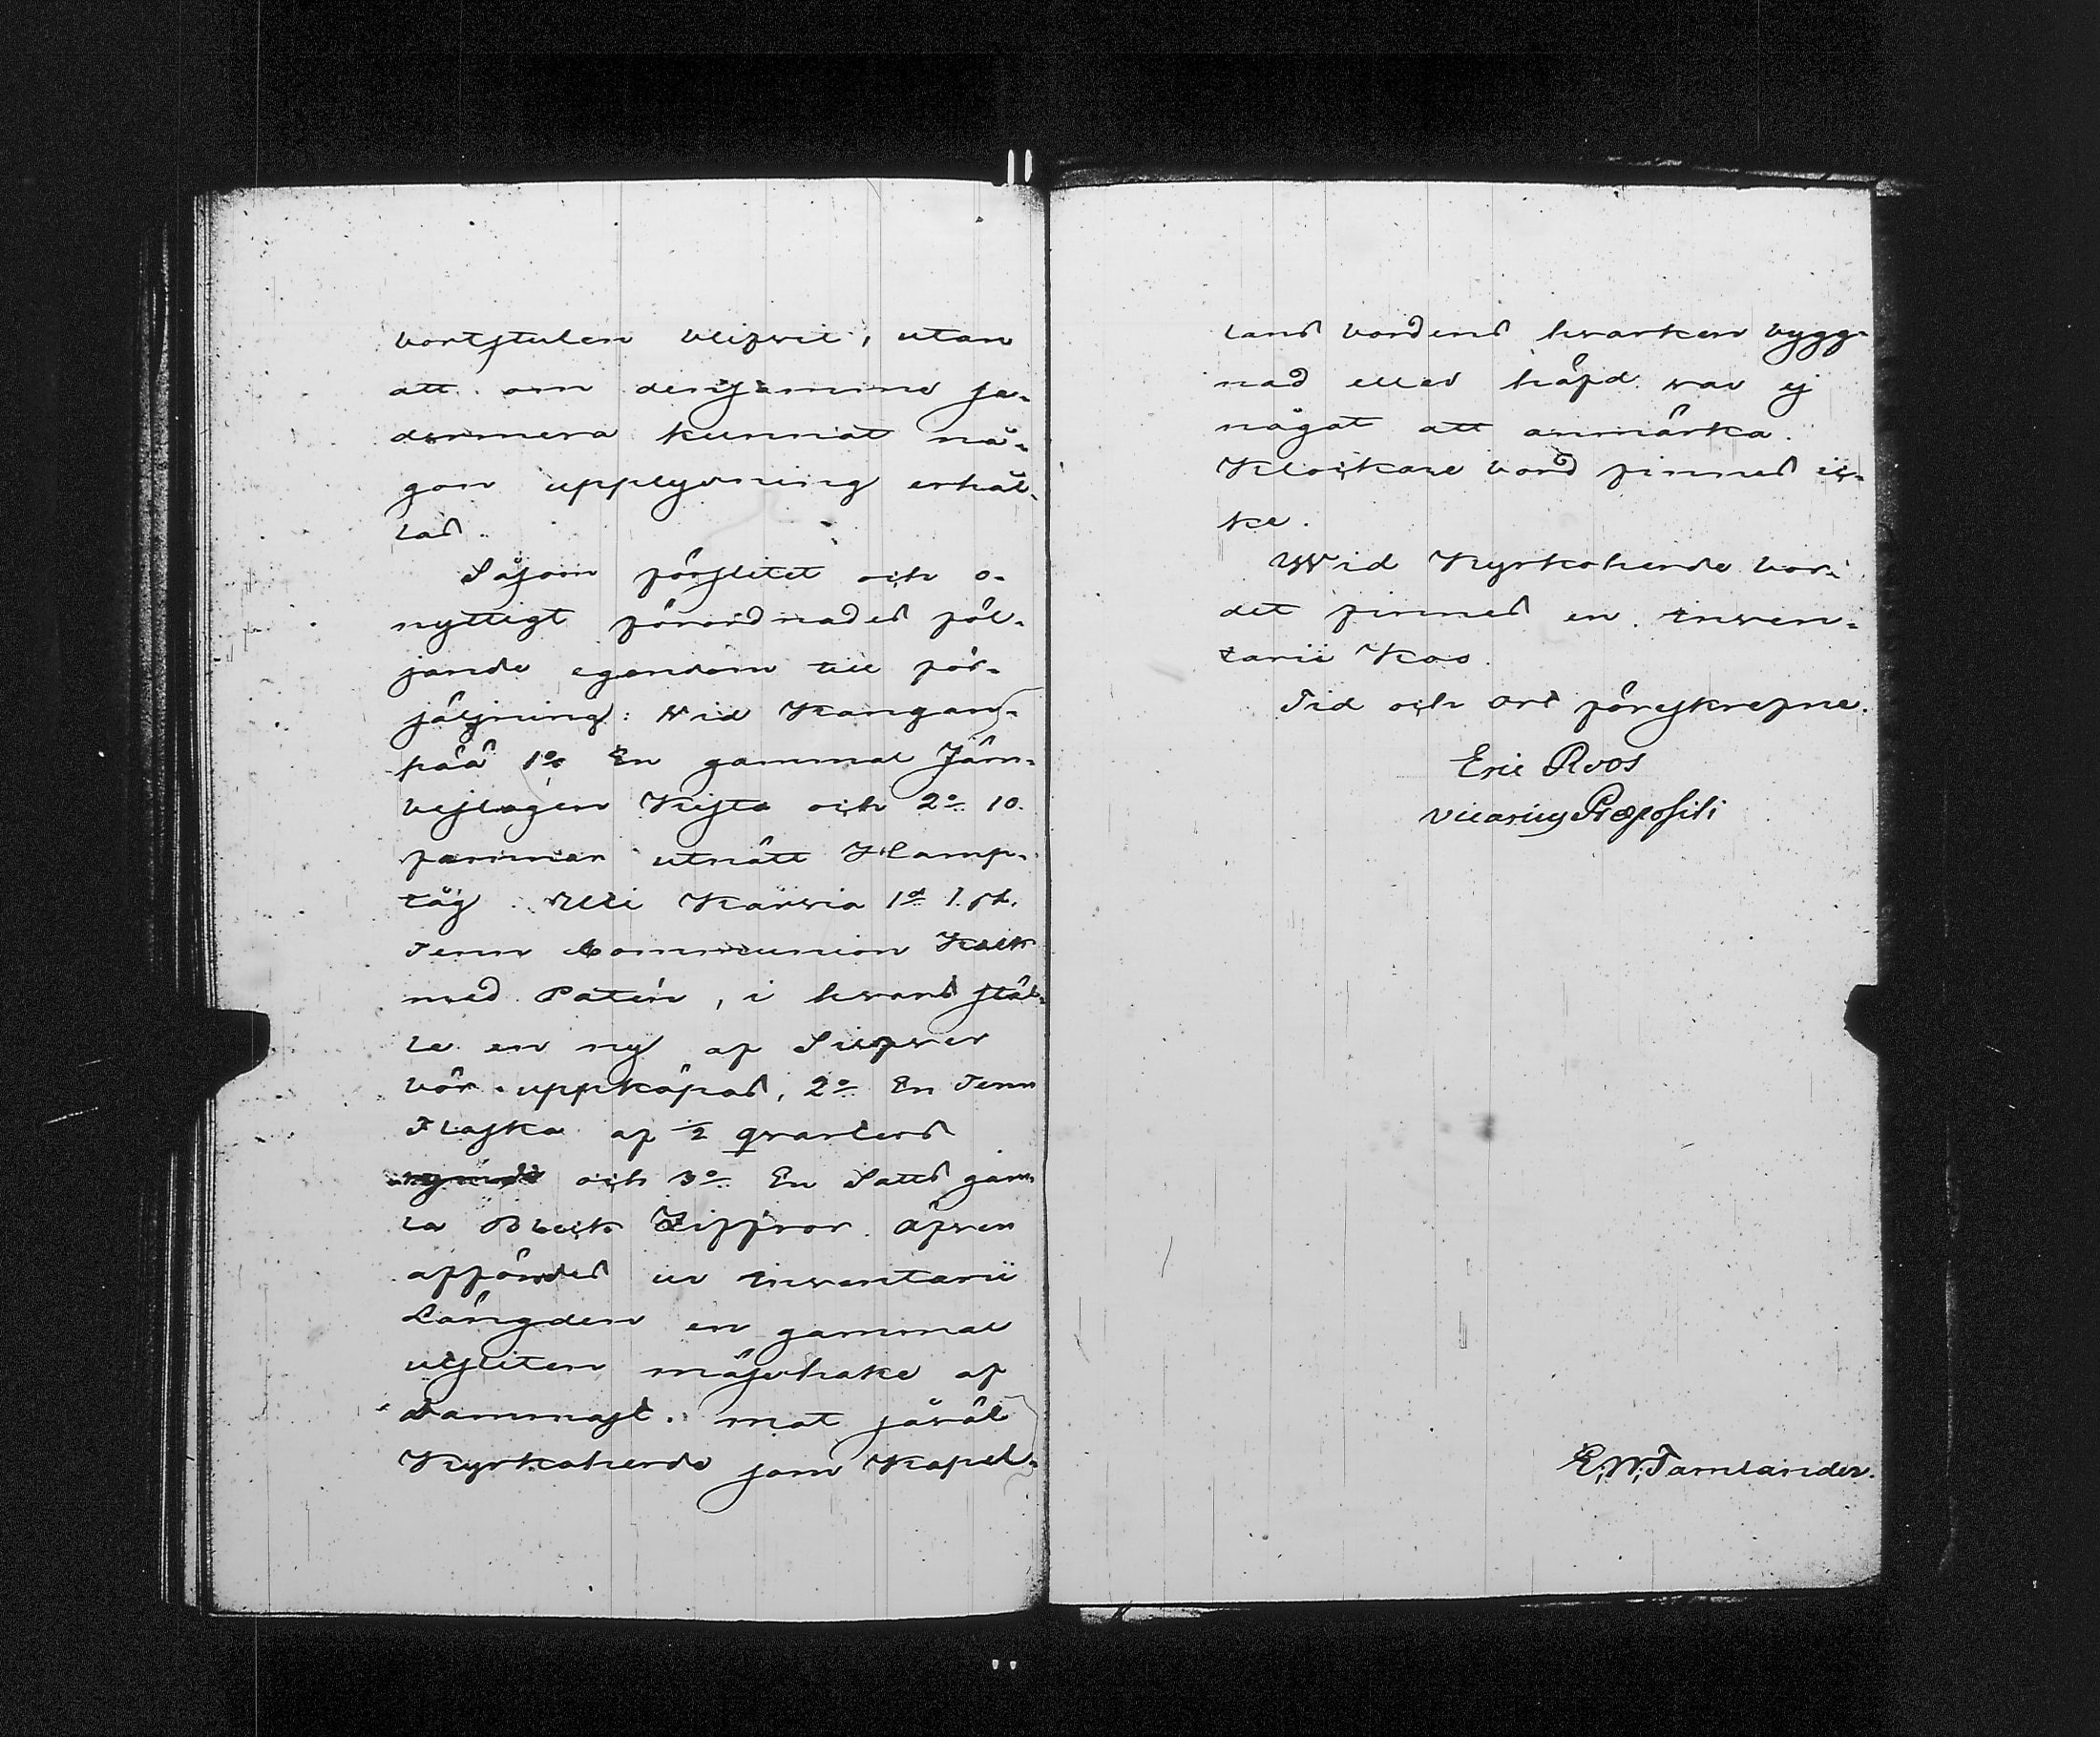 bortstulen blifvit, utan
att om densamme se-
dermera kunnat nå-
gon upplysning erhål-
las.
Såsom förslitet och o-
nyttigt förordnades föl-
jande egendom till för-
säljning: Wid Kangan-
pää 1o En gammal Järn-
beslagen Kista och 2o 10.
famnar utnött Hamp-
tåg. Uti Karvia 1o 1. st.
Tenn Communion Kalk
med Patén, i hvars stäl-
le en ny af Silfver
bör uppköpas, 2o En Tenn
Flaska af 1/2 qvarters
och 3o En Satts gam-
la Bleck Ziffror. Äfven
affördes ur Inventarii
Längden en gammal
utsliten mässhake af
Dammast. mot såväl
Kyrkoherde som Kapel-
lans bordens hvarken bygg-
nad eller häfd var ej
något att anmärka.
Klockare bord finnes ic-
ke.
Wid Kyrkoherde bor-
det finnes en Inven-
tarii Koo.
Tid och Ort förskrefne.
Eric Roos
vicarius Præpositi
E. W. Tamlander.